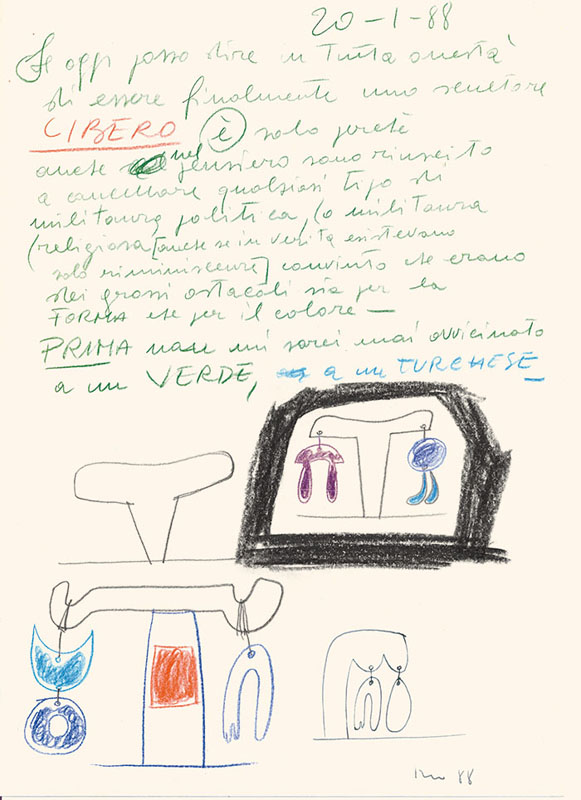 20-1-88
Se oggi posso dire in tutta onestà
di essere finalmente uno scultore
LIBERO è solo perchè
anche nel pensiero sono riuscito
a cancellare qualsiasi tipo di
militanza politica, (o militanza
(religiosa [anche se in verità esistevano
solo riminiscenze] convinto che erano
dei grossi ostacoli sia per la
FORMA che per il colore —
PRIMA non mi sarei mai avvicinato
a un VERDE, a un TURCHESE
88